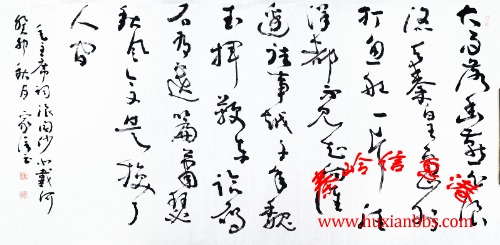 大雨落幽燕白浪
滔天秦皇岛外
打鱼船一片汪
洋都不见知向谁
边往事越千年魏
武挥鞭东临碣
石有遗篇萧瑟
秋风今又是换了
人间
毛主席词浪淘沙北戴河
癸卯秋月家书
岭信息
www.huxianbbs.com